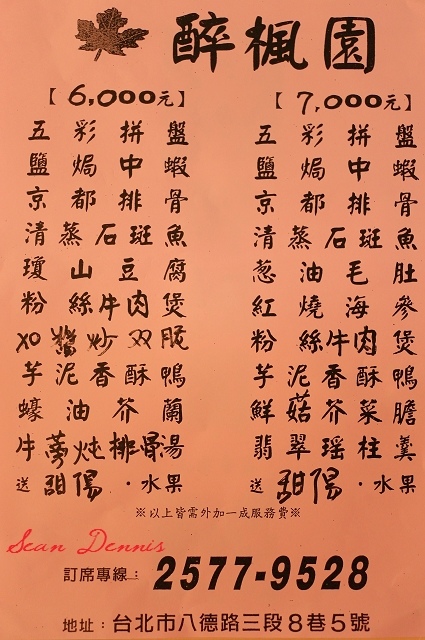 醉楓園
【6,000元】
五彩拼盤
鹽焗中蝦
京都排骨
清蒸石斑魚
瓊山豆腐
粉絲牛肉煲
XO醬炒双脆
芋泥香酥鴨
蠔油芥蘭
牛蒡炖排骨湯
送 甜湯・水果
【7,000元】
五彩拼盤
鹽焗中蝦
京都排骨
清蒸石斑魚
葱油毛肚
紅燒海參
粉絲牛肉煲
芋泥香酥鴨
鮮菇芥菜膽
翡翠瑤柱羹
送 甜湯・水果
※以上皆需外加一成服務費※
Sean Dennis
訂席專線：2577-9528
地址：台北市八德路三段8巷5號